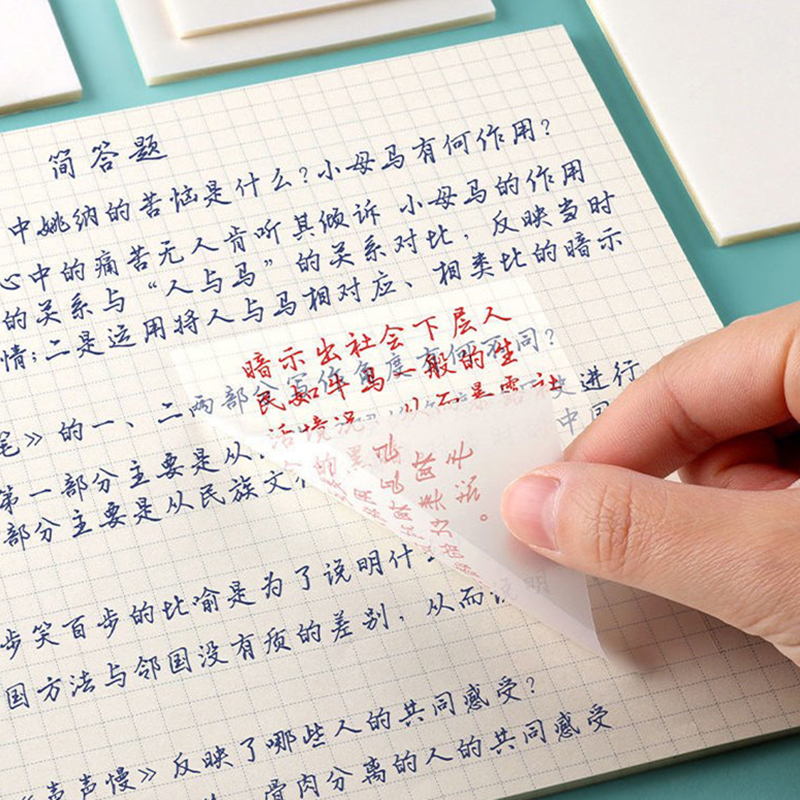 简答题
中姚纳的苦恼是什么?小母马有何作用?
心中的痛苦无人肯听其倾诉 小母马的作用
的关系与“人与马”的关系对比,反映当时
情;二是运用将人与马相对应、相类比的暗示
暗示出社会下层人
民如牛马一般的生
活境况,从而暴露社
笔》的一、二两部分写作角度有何不同?
第一部分主要是从
史进行
部分主要是从民族文
中国
步笑百步的比喻是为了说明什
国方法与邻国没有质的差别,从而说明
《声声慢》反映了哪些人的共同感受?
骨肉分离的人的共同感受